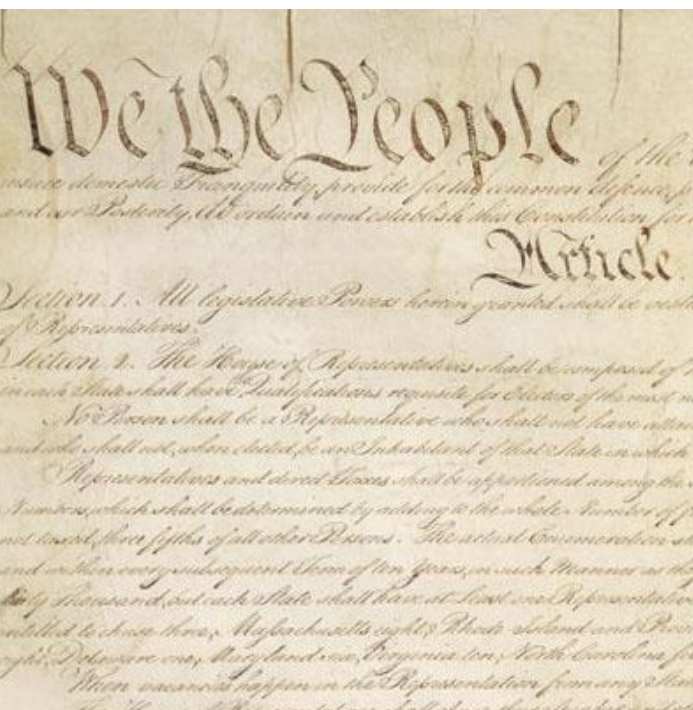 We the People of the
insure domestic Tranquility, provide for the common defence,
and our Posterity, do ordain and establish this Constitution for
Article
Section 1. All legislative Powers herein granted shall be
of Representatives.
Section 2. The House of Representatives shall be composed of
in each State shall have Qualifications requisite for Electors of the most
No Person shall be a Representative who shall not have
and who shall not, when elected, be an Inhabitant of that State in which
Representatives and direct Taxes shall be apportioned among the
Numbers, which shall be determined by adding to the whole Number of
not taxed, three fifths of all other Persons. The actual Enumeration
and within every subsequent Term of ten Years, in such Manner as
Thousand, but each State shall have at Least one Representative
entitled to chuse three, Massachusetts eight, Rhode Island and
eight, Delaware one, Maryland six, Virginia ten, North Carolina
When vacancies happen in the Representation from any